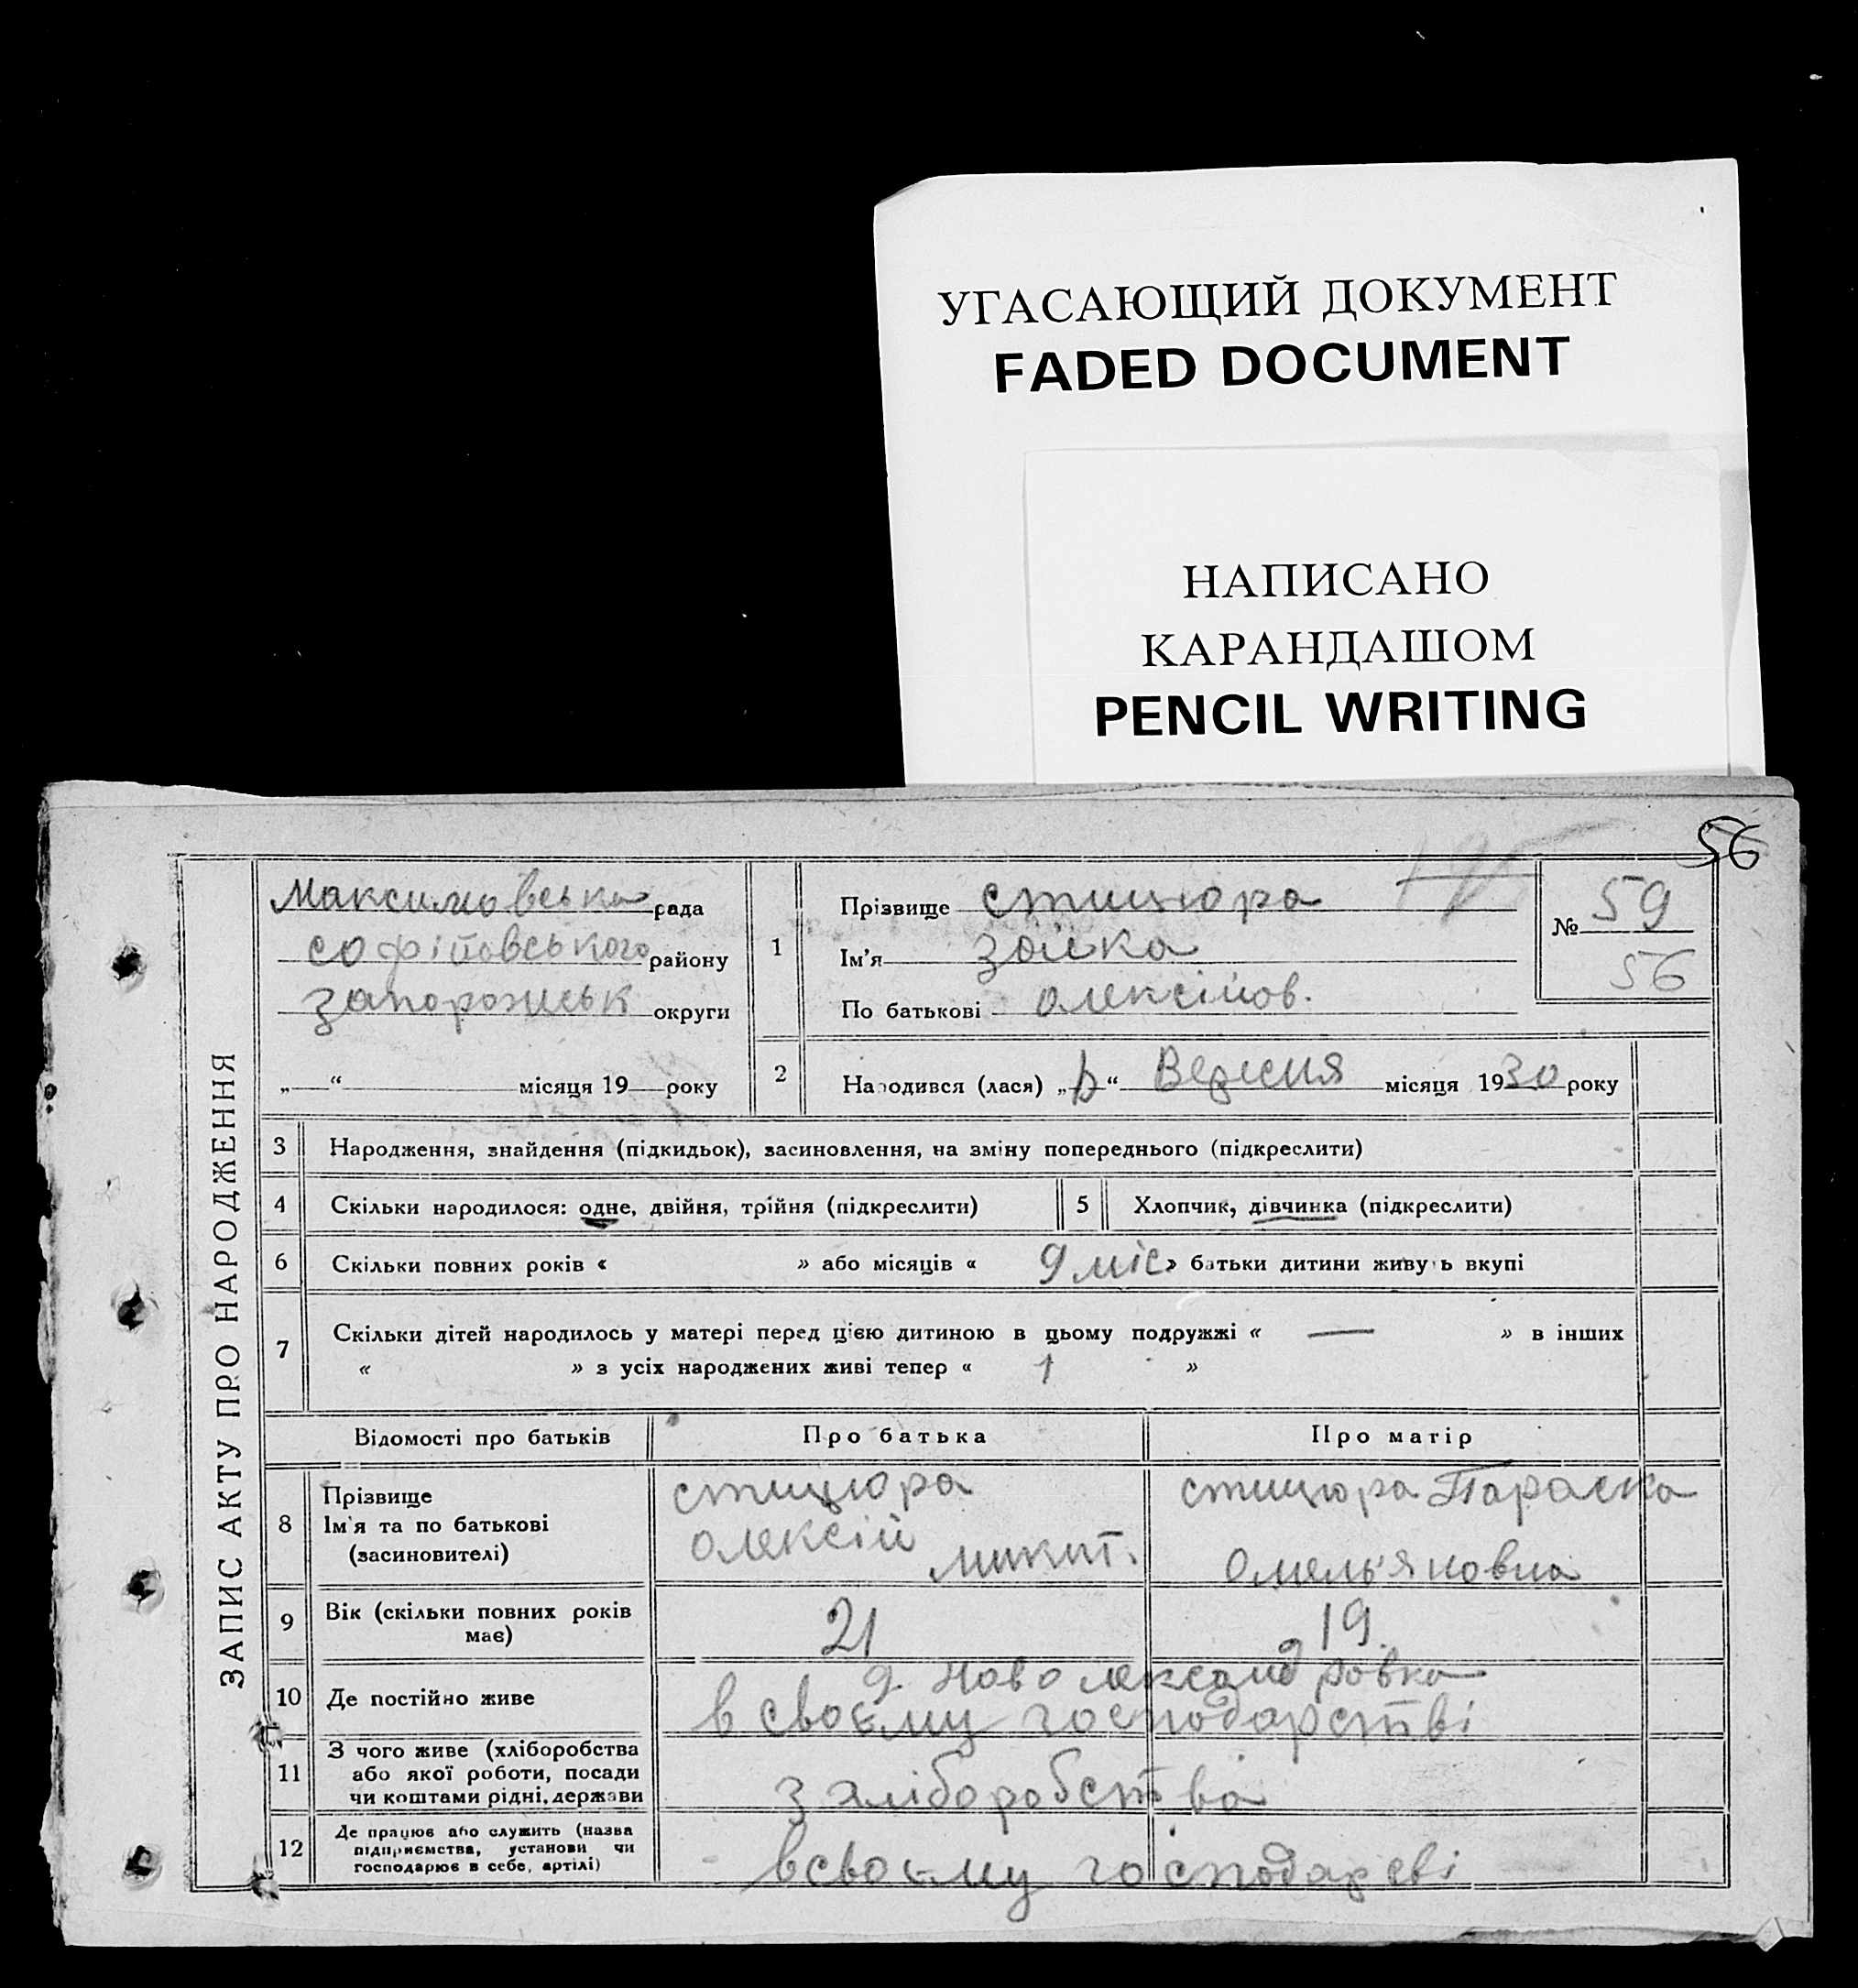 УГАСАЮЩИЙ ДОКУМЕНТ
FADED DOCUMENT
НАПИСАНО
КАРАНДАШОМ
PENCIL WRITING
56
ЗАПИС АКТУ ПРО НАРОДЖЕННЯ
Максимовська рада
софіівського району
запорожськ округи
„ “ місяця 19 року
1
Прізвище стицюра
Ім'я зойка
По батькові олексійов.
№ 59
56
2 Народився (лася) „ “ Вересня місяця 1930 року
3 Народження, знайдення (підкидьок), засиновлення, на зміну попереднього (підкреслити)
4 Скільки народилося: одне, двійня, трійня (підкреслити) 5 Хлопчик, дівчинка (підкреслити)
6 Скільки повних років « » або місяців « 9 міс » батьки дитини живуть вкупі
7 Скільки дітей народилось у матері перед цією дитиною в цьому подружжі « — » в інших
« » з усіх народжених живі тепер « 1 »
Відомості про батьків Про батька Про матір
8 Прізвище
Ім'я та по батькові
(засиновителі)
стицюра
олексій микит.
стицюра Параска
Омель'яновна
9 Вік (скільки повних років
має)
21 19
10 Де постійно живе
д. Новолександровка
в своєму господарстві
11 З чого живе (хліборобства
або якої роботи, посади
чи коштами рідні, держави
з хліборобства
12 Де працює або служить (назва
підприємства, установи чи
господарює в себе, артілі)
в своєму господарсві